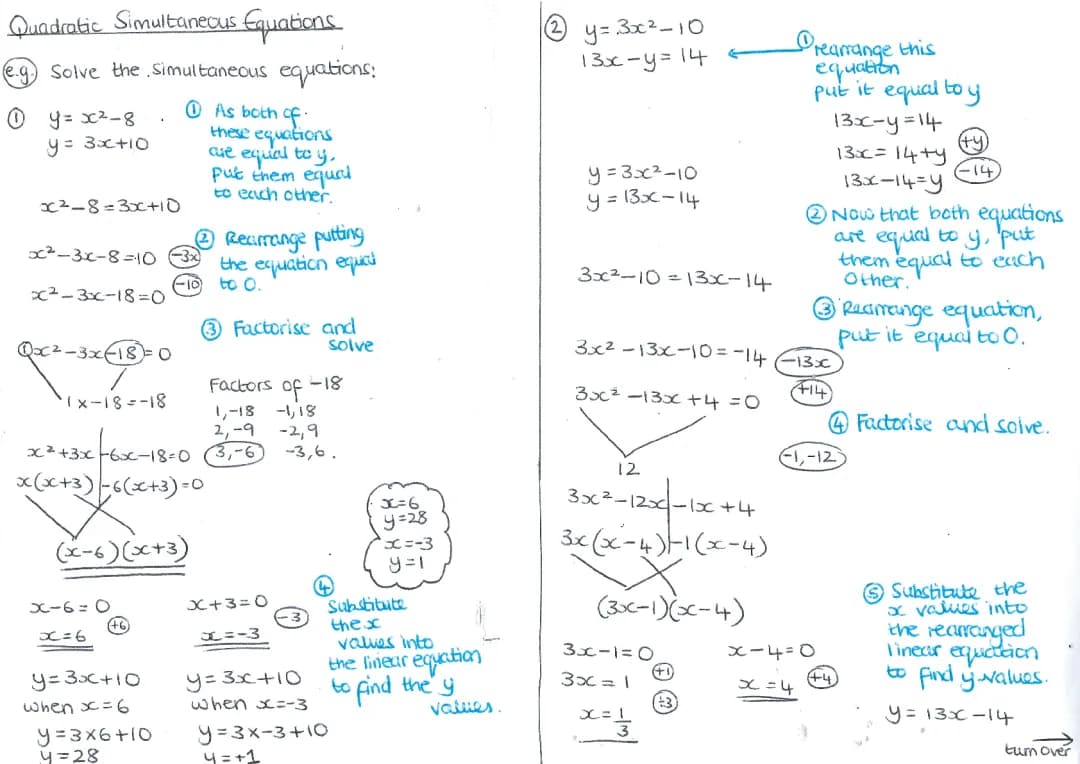 Quadratic Simultaneous Equations
e.g. Solve the simultaneous equations:
① y = x²-8
y = 3x+10
① As both of
these equations
are equal to y,
put them equal
to each other.
x²-8=3x+10
② Rearrange putting
the equation equal
to 0.
x²-3x-8=10 -3x
x²-3x-18=0 -10
③ Factorise and
solve
①x²-3x-18=0
1x-18=-18
Factors of -18
1,-18 -1,18
2,-9 -2,9
3,-6 -3,6.
x²+3x-6x-18=0
x(x+3)-6(x+3)=0
(x-6)(x+3)
x=6
y=28
x=-3
y=1
x-6=0 +6
x=6
x+3=0 -3
x=-3
④
Substitute
the x
values into
the linear equation
to find the y
values.
y=3x+10
when x=6
y=3x6+10
y=28
y=3x+10
when x=-3
y=3x-3+10
y=+1
② y=3x²-10
13x-y=14
① rearrange this
equation
put it equal to y
13x-y=14
13x=14+y +y
13x-14=y -14
y=3x²-10
y=13x-14
② Now that both equations
are equal to y, put
them equal to each
other.
3x²-10=13x-14
③ Rearrange equation,
put it equal to 0.
3x²-13x-10=-14 -13x
3x²-13x+4=0 +14
④ Factorise and solve.
12
-1,-12
3x²-12x-1x+4
3x(x-4)-1(x-4)
(3x-1)(x-4)
3x-1=0 +1
3x=1 ÷3
x=1/3
x-4=0
x=4 +4
⑤ Substitute the
x values into
the rearranged
linear equation
to find y values.
y=13x-14
turn over